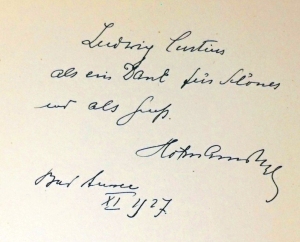 Ludwig Curtius
als ein Dank für Schönes
und als Gruß.
Hofmannsthal
Bad Aussee
XI 1927